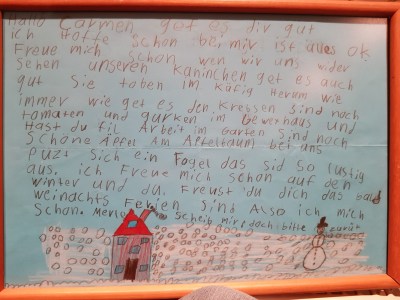 Hallo Carmen get es dir gut
ich Hoffe schon bei mir ist alles ok
Freue mich schon wen wir uns wider
sehen unseren kaninchen get es auch
gut Sie toben im käfig Herum wie
immer wie get es den krebsen sind noch
tomaten und gurken im Gewerhaus und
Hast du fil Arbeit im Garten sind noch
schöne Äpfel Am Apfelbaum bei uns
puzt sich ein Fogel das sid so lustig
aus. ich Freue mich schon auf den
winter und du. Freust du dich das bald
weinachts Ferien sind Also ich mich
schon. Merle
Scheib mir dach bitte zurük